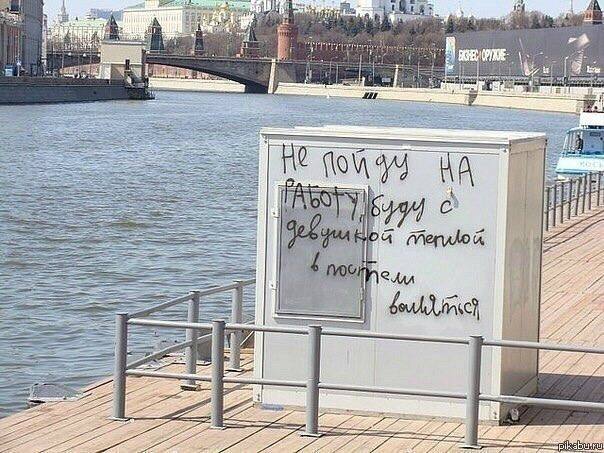 БИЗНЕС ОРУЖИЕ
Не пойду на
работу, буду с
девушкой теплой
в постели
валяться
pikabu.ru